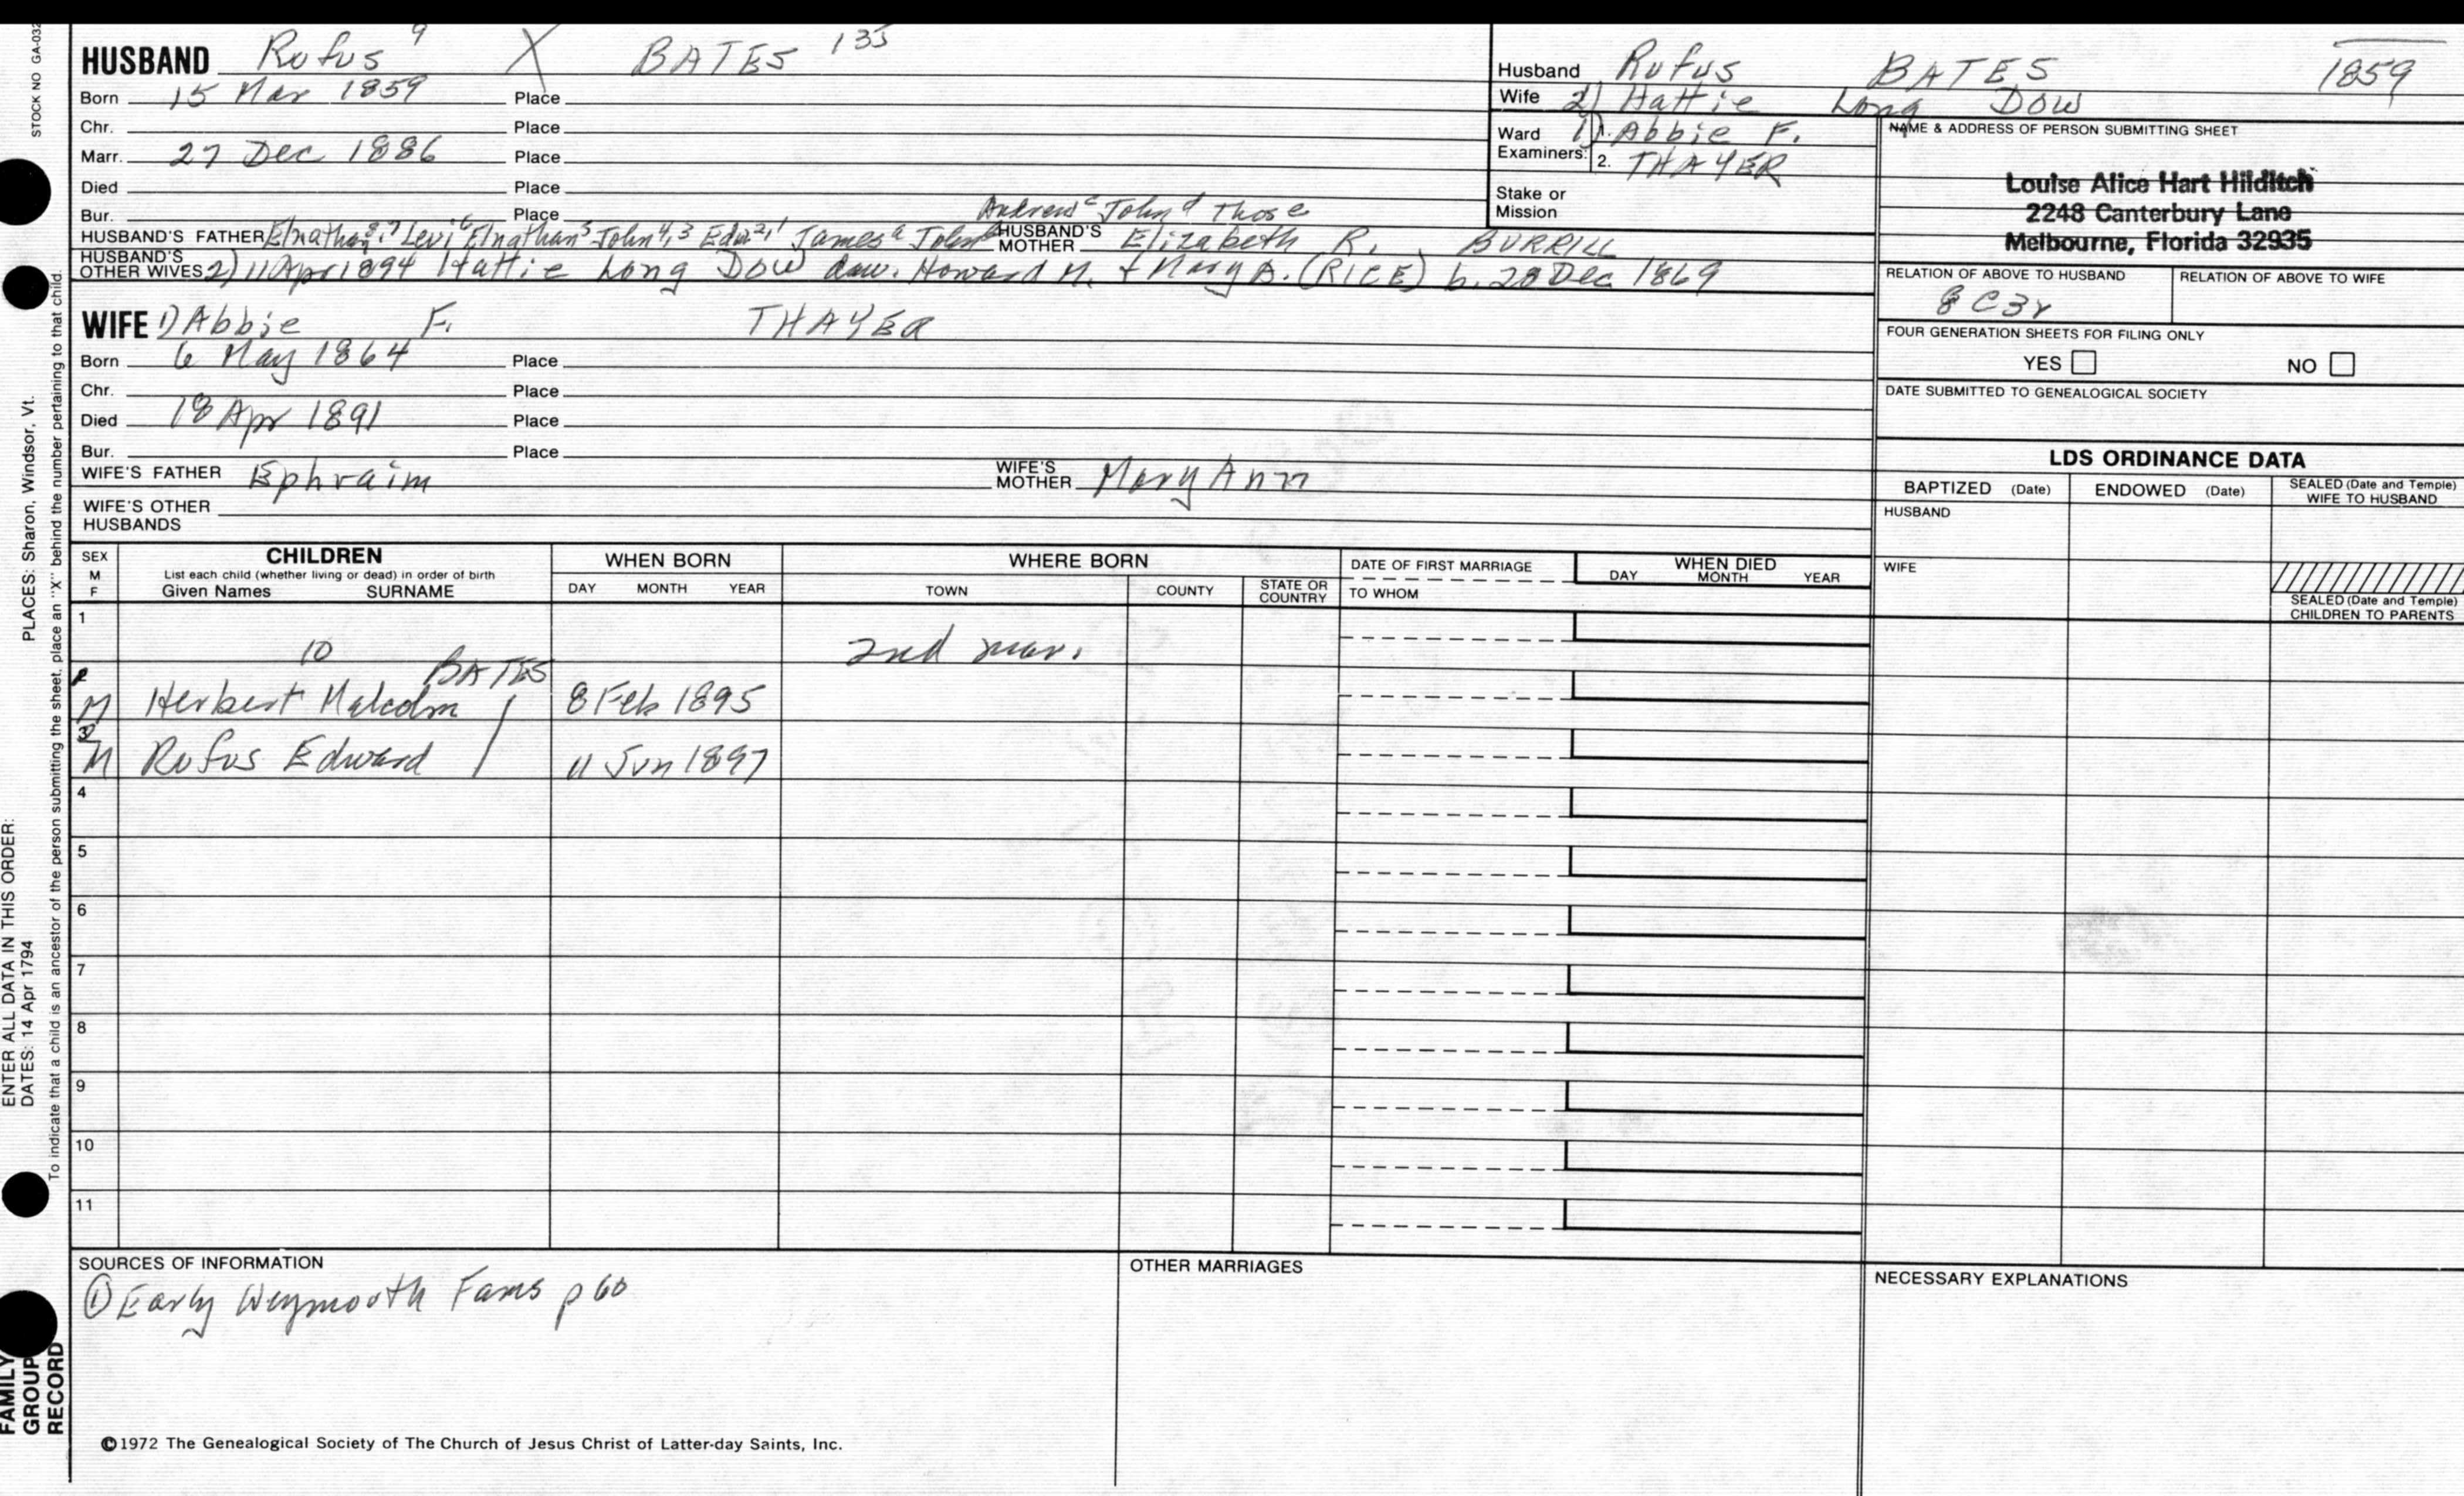 HUSBAND Rufus 9 X BATES 135
Born 15 Mar 1859 Place
Chr. Place
Marr. 27 Dec 1886 Place
Died Place
Bur. Place
Andrew c John d Thos e
HUSBAND'S FATHER Elnathan 8,7 Levi 6 Elnathan 5 John 4,3 Edw 2,1 James a John b HUSBAND'S MOTHER Elizabeth R. BURRILL
HUSBAND'S OTHER WIVES 2) 11 Apr 1894 Hattie Long Dow daw. Howard M. + Mary A. (RICE) b. 28 Dec 1869
WIFE 1) Abbie F. THAYER
Born 6 May 1864 Place
Chr. Place
Died 18 Apr 1891 Place
Bur. Place
WIFE'S FATHER Ephraim WIFE'S MOTHER Mary Ann
WIFE'S OTHER HUSBANDS
Husband Rufus BATES 1859
Wife 2) Hattie Long Dow
Ward 1) 1. Abbie F.
Examiners: 2. THAYER
Stake or Mission
NAME & ADDRESS OF PERSON SUBMITTING SHEET
Louise Alice Hart Hilditch
2248 Canterbury Lane
Melbourne, Florida 32935
RELATION OF ABOVE TO HUSBAND RELATION OF ABOVE TO WIFE
8C3r
FOUR GENERATION SHEETS FOR FILING ONLY
YES NO
DATE SUBMITTED TO GENEALOGICAL SOCIETY
LDS ORDINANCE DATA
BAPTIZED (Date) ENDOWED (Date) SEALED (Date and Temple) WIFE TO HUSBAND
HUSBAND
WIFE
SEALED (Date and Temple) CHILDREN TO PARENTS
SEX M F CHILDREN WHEN BORN WHERE BORN DATE OF FIRST MARRIAGE WHEN DIED
List each child (whether living or dead) in order of birth
Given Names SURNAME DAY MONTH YEAR TOWN COUNTY STATE OR COUNTRY TO WHOM DAY MONTH YEAR
1
10 BATES 2nd mar.
2
M Herbert Malcolm 8 Feb 1895
3
M Rufus Edward 11 Jun 1897
4
5
6
7
8
9
10
11
SOURCES OF INFORMATION
① Early Weymouth Fams p 60
OTHER MARRIAGES
NECESSARY EXPLANATIONS
©1972 The Genealogical Society of The Church of Jesus Christ of Latter-day Saints, Inc.
STOCK NO GA-032
PLACES: Sharon, Windsor, Vt.
To indicate that a child is an ancestor of the person submitting the sheet, place an "X" behind the number pertaining to that child.
ENTER ALL DATA IN THIS ORDER:
DATES: 14 Apr 1794
FAMILY
GROUP
RECORD